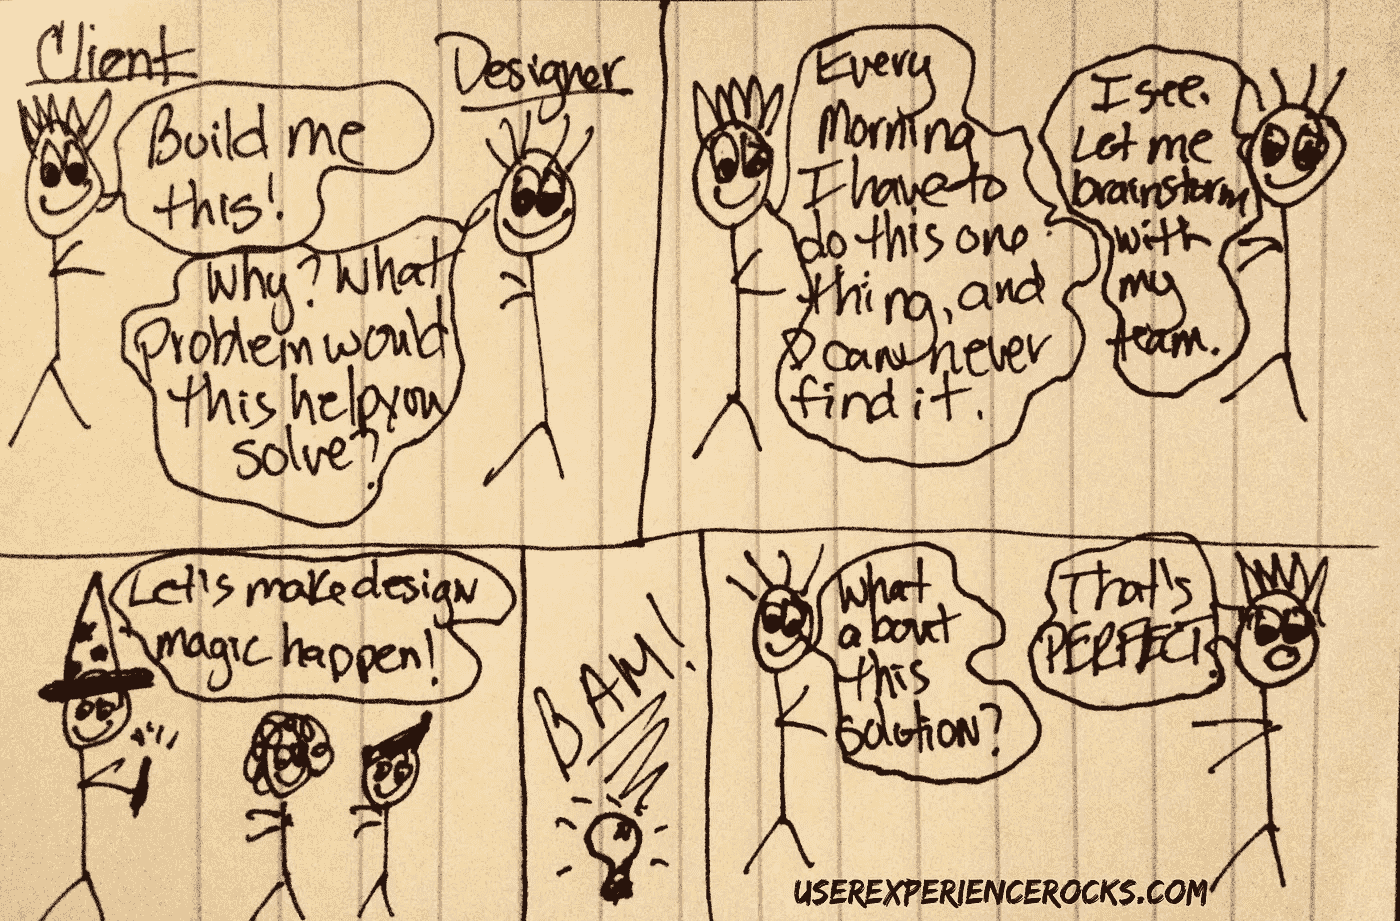 Client
Designer
Build me
this!
Why? What
problem would
this help you
solve?
Every
morning
I have to
do this one
thing, and
I can never
find it.
I see.
Let me
brainstorm
with
my
team.
Let's make design
magic happen!
BAM!
What
about
this
solution?
That's
PERFECT!
USEREXPERIENCEROCKS.COM